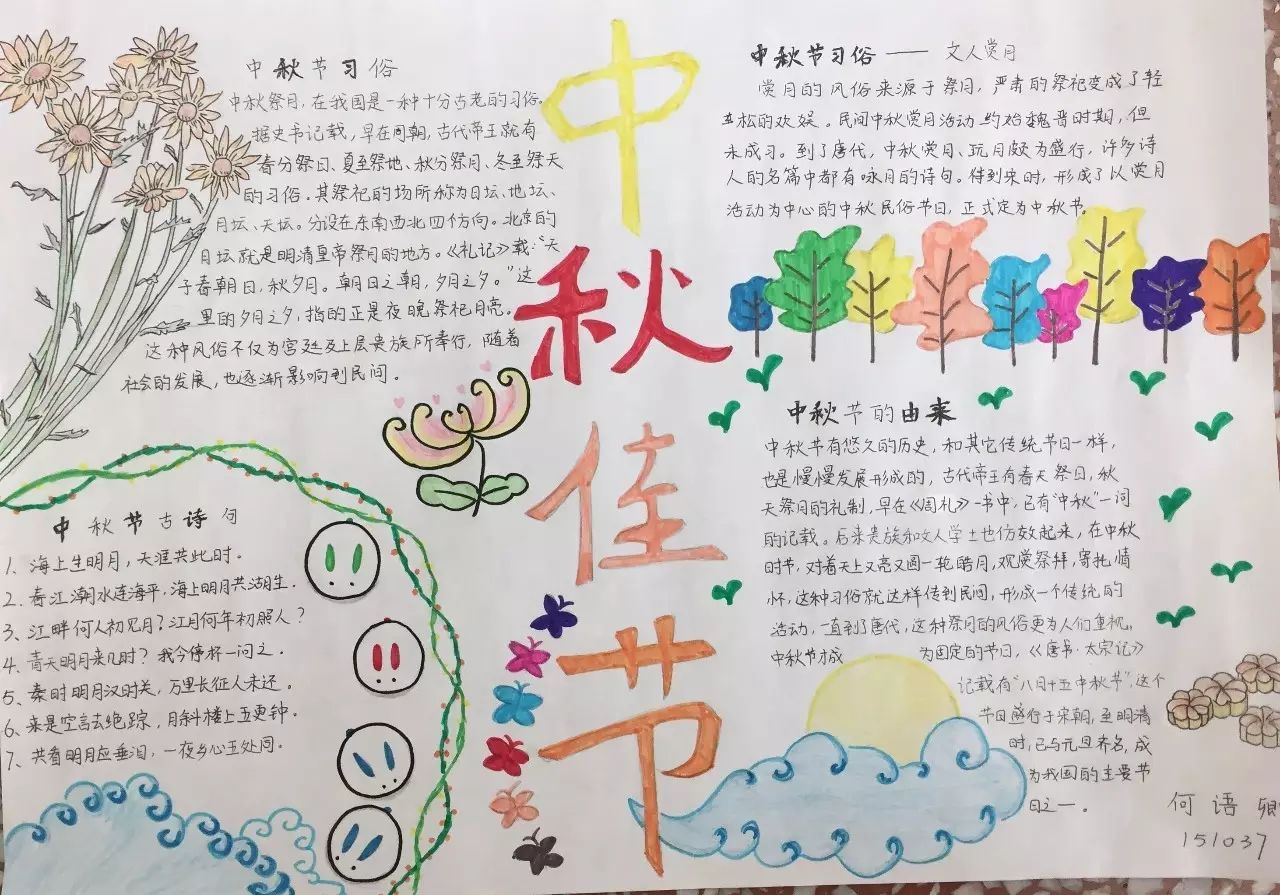 中秋佳节
中秋节习俗
中秋祭月，在我国是一种十分古老的习俗。
据史书记载，早在周朝，古代帝王就有
春分祭日、夏至祭地、秋分祭月、冬至祭天
的习俗。其祭祀的场所称为日坛、地坛、
月坛、天坛。分设在东南西北四个方向。北京的
月坛就是明清皇帝祭月的地方。《礼记》载：“天
子春朝日，秋夕月。朝日之朝，夕月之夕。”这
里的夕月之夕，指的正是夜晚祭祀月亮。
这种风俗不仅为宫廷及上层贵族所奉行，随着
社会的发展，也逐渐影响到民间。
中秋节习俗——文人赏月
赏月的风俗来源于祭月，严肃的祭祀变成了轻
松的欢娱。民间中秋赏月活动约始魏晋时期，但
未成习。到了唐代，中秋赏月、玩月颇为盛行，许多诗
人的名篇中都有咏月的诗句。待到宋时，形成了以赏月
活动为中心的中秋民俗节日，正式定为中秋节。
中秋节的由来
中秋节有悠久的历史，和其它传统节日一样，
也是慢慢发展形成的，古代帝王有春天祭日，秋
天祭月的礼制，早在《周礼》一书中，已有“中秋”一词
的记载。后来贵族和文人学士也仿效起来，在中秋
时节，对着天上又亮又圆一轮皓月，观赏祭拜，寄托情
怀，这种习俗就这样传到民间，形成一个传统的
活动，一直到了唐代，这种祭月的风俗更为人们重视，
中秋节才成为固定的节日，《唐书·太宗记》
记载有“八月十五中秋节”，这个
节日盛行于宋朝，至明清
时，已与元旦齐名，成
为我国的主要节
日之一。
中秋节古诗句
1、海上生明月，天涯共此时。
2、春江潮水连海平，海上明月共潮生。
3、江畔何人初见月？江月何年初照人？
4、青天明月来几时？我今停杯一问之。
5、秦时明月汉时关，万里长征人未还。
6、来是空言去绝踪，月斜楼上五更钟。
7、共看明月应垂泪，一夜乡心五处同。
何语
151037